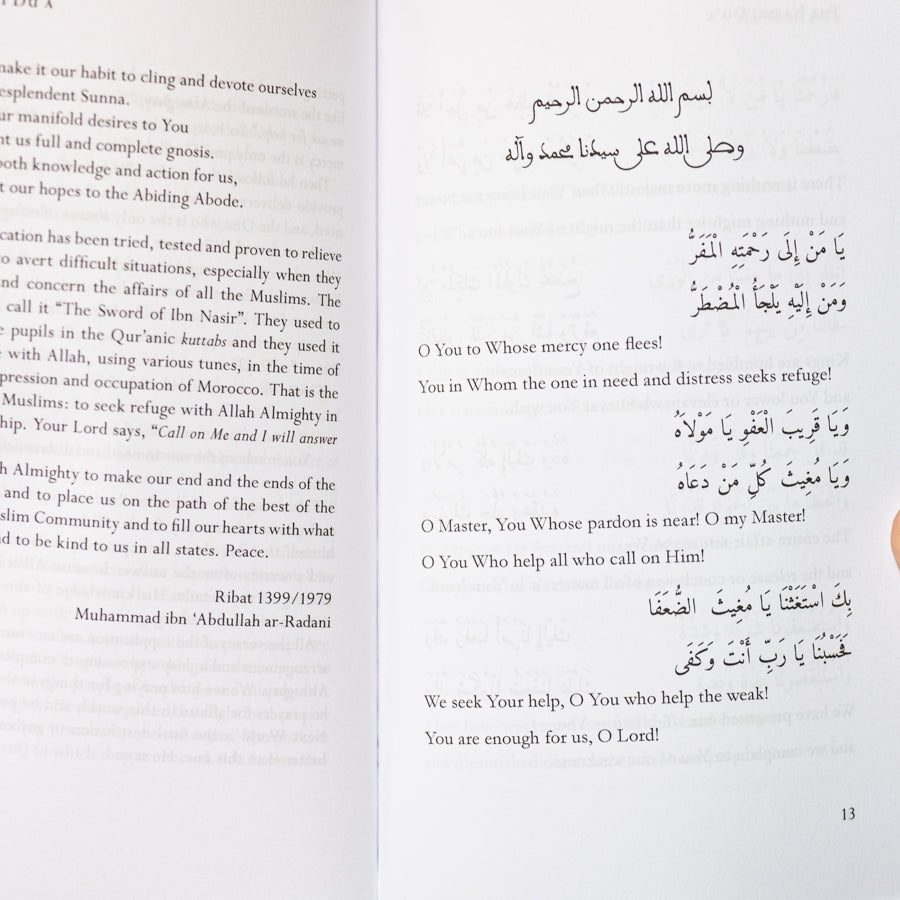 Du'a
make it our habit to cling and devote ourselves
esplendent Sunna.
ur manifold desires to You
nt us full and complete gnosis.
both knowledge and action for us,
t our hopes to the Abiding Abode.
cation has been tried, tested and proven to relieve
o avert difficult situations, especially when they
nd concern the affairs of all the Muslims. The
call it “The Sword of Ibn Nasir”. They used to
e pupils in the Qur’anic kuttabs and they used it
with Allah, using various tunes, in the time of
pression and occupation of Morocco. That is the
Muslims: to seek refuge with Allah Almighty in
hip. Your Lord says, “Call on Me and I will answer
h Almighty to make our end and the ends of the
and to place us on the path of the best of the
slim Community and to fill our hearts with what
d to be kind to us in all states. Peace.
Ribat 1399/1979
Muhammad ibn ‘Abdullah ar-Radani
بسم الله الرحمن الرحيم
وصلى الله على سيدنا محمد وآله
يَا مَنْ إِلَى رَحْمَتِهِ الْمَفَرُّ
وَمَنْ إِلَيْهِ يَلْجَأُ الْمُضْطَرُّ
O You to Whose mercy one flees!
You in Whom the one in need and distress seeks refuge!
وَيَا قَرِيبَ الْعَفْوِ يَا مَوْلَاهُ
وَيَا مُغِيثَ كُلِّ مَنْ دَعَاهُ
O Master, You Whose pardon is near! O my Master!
O You Who help all who call on Him!
بِكَ اسْتَغَثْنَا يَا مُغِيثَ الضُّعَفَا
فَحَسْبُنَا يَا رَبِّ أَنْتَ وَكَفَى
We seek Your help, O You who help the weak!
You are enough for us, O Lord!
13